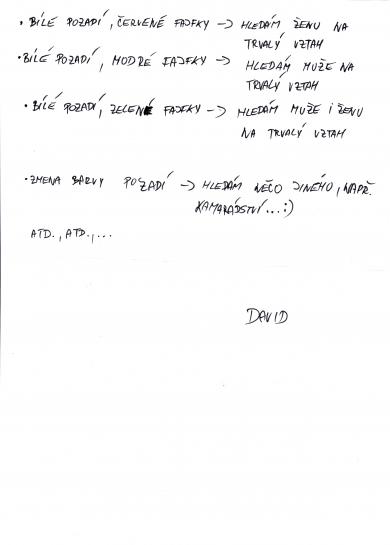 • BÍLÉ POZADÍ, ČERVENÉ FAJFKY → HLEDÁM ŽENU NA
TRVALÝ VZTAH
• BÍLÉ POZADÍ, MODRÉ FAJFKY → HLEDÁM MUŽE NA
TRVALÝ VZTAH
• BÍLÉ POZADÍ, ZELENÉ FAJFKY → HLEDÁM MUŽE I ŽENU
NA TRVALÝ VZTAH
• ZMENA BARVY POZADÍ → HLEDÁM NĚCO JINÉHO, NAPŘ.
KAMARÁDSTVÍ...:)
ATD., ATD.,...
DAVID